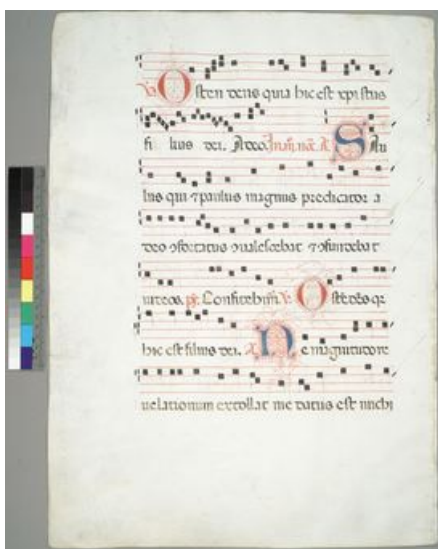 V Osten dens quia hic est xpistus
fi lius dei. A deo. Sau
lus qui ⁊ paulus magnus predicator a
deo ꝯfortatus ꝯualescebat ⁊ ꝯfundebat
iudeos. ps. Confitebim̃. V Oste
hic est filius dei. A Ne magnitudo re
uelationum extollat me datus est michi